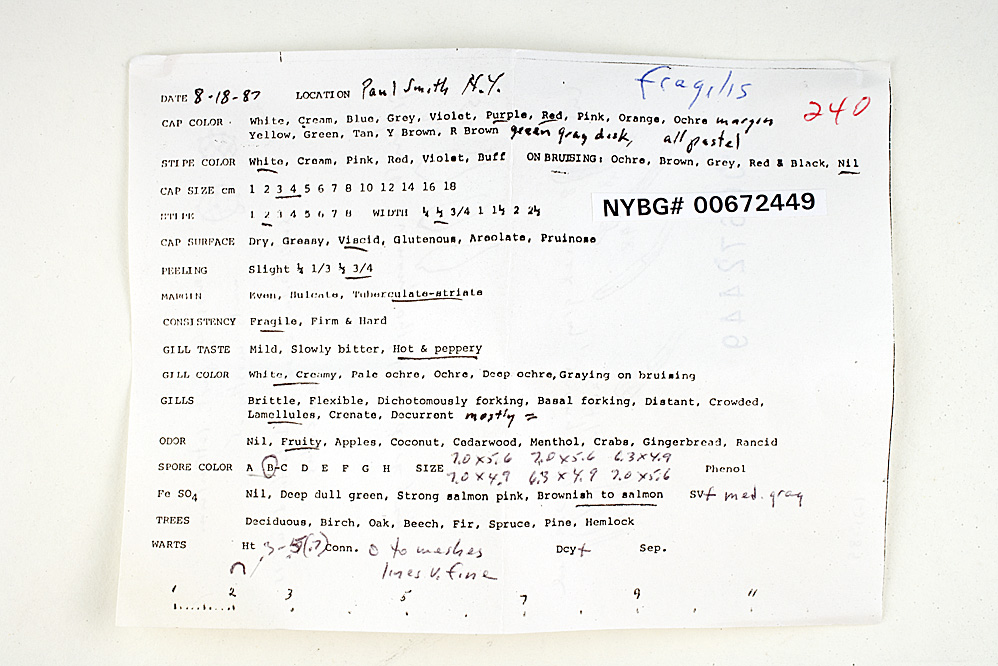 Fragilis
DATE 8-18-87 LOCATION Paul Smith N.Y.
240
CAP COLOR · White, Cream, Blue, Grey, Violet, Purple, Red, Pink, Orange, Ochre margin
Yellow, Green, Tan, Y Brown, R Brown green gray disk, all pastel
STIPE COLOR White, Cream, Pink, Red, Violet, Buff ON BRUISING: Ochre, Brown, Grey, Red & Black, Nil
CAP SIZE cm 1 2 3 4 5 6 7 8 10 12 14 16 18
NYBG# 00672449
STIPE 1 2 3 4 5 6 7 8 WIDTH ¼ ½ 3/4 1 1½ 2 2½
CAP SURFACE Dry, Greasy, Viscid, Glutenous, Areolate, Pruinose
PEELING Slight ¼ 1/3 ½ 3/4
MARGIN Even, Sulcate, Tuberculate-striate
CONSISTENCY Fragile, Firm & Hard
GILL TASTE Mild, Slowly bitter, Hot & peppery
GILL COLOR White, Creamy, Pale ochre, Ochre, Deep ochre, Graying on bruising
GILLS Brittle, Flexible, Dichotomously forking, Basal forking, Distant, Crowded,
Lamellules, Crenate, Decurrent mostly =
ODOR Nil, Fruity, Apples, Coconut, Cedarwood, Menthol, Crabs, Gingerbread, Rancid
7.0 x 5.6 7.0 x 5.6 6.3 x 4.9
SPORE COLOR A B-C D E F G H SIZE 7.0 x 4.9 6.3 x 4.9 7.0 x 5.6 Phenol
Fe SO4 Nil, Deep dull green, Strong salmon pink, Brownish to salmon SV+ med. gray
TREES Deciduous, Birch, Oak, Beech, Fir, Spruce, Pine, Hemlock
WARTS Ht .3-.5(.7) Conn. 0 to meshes Dcy+ Sep.
lines v. fine
1 2 3 5 7 9 11